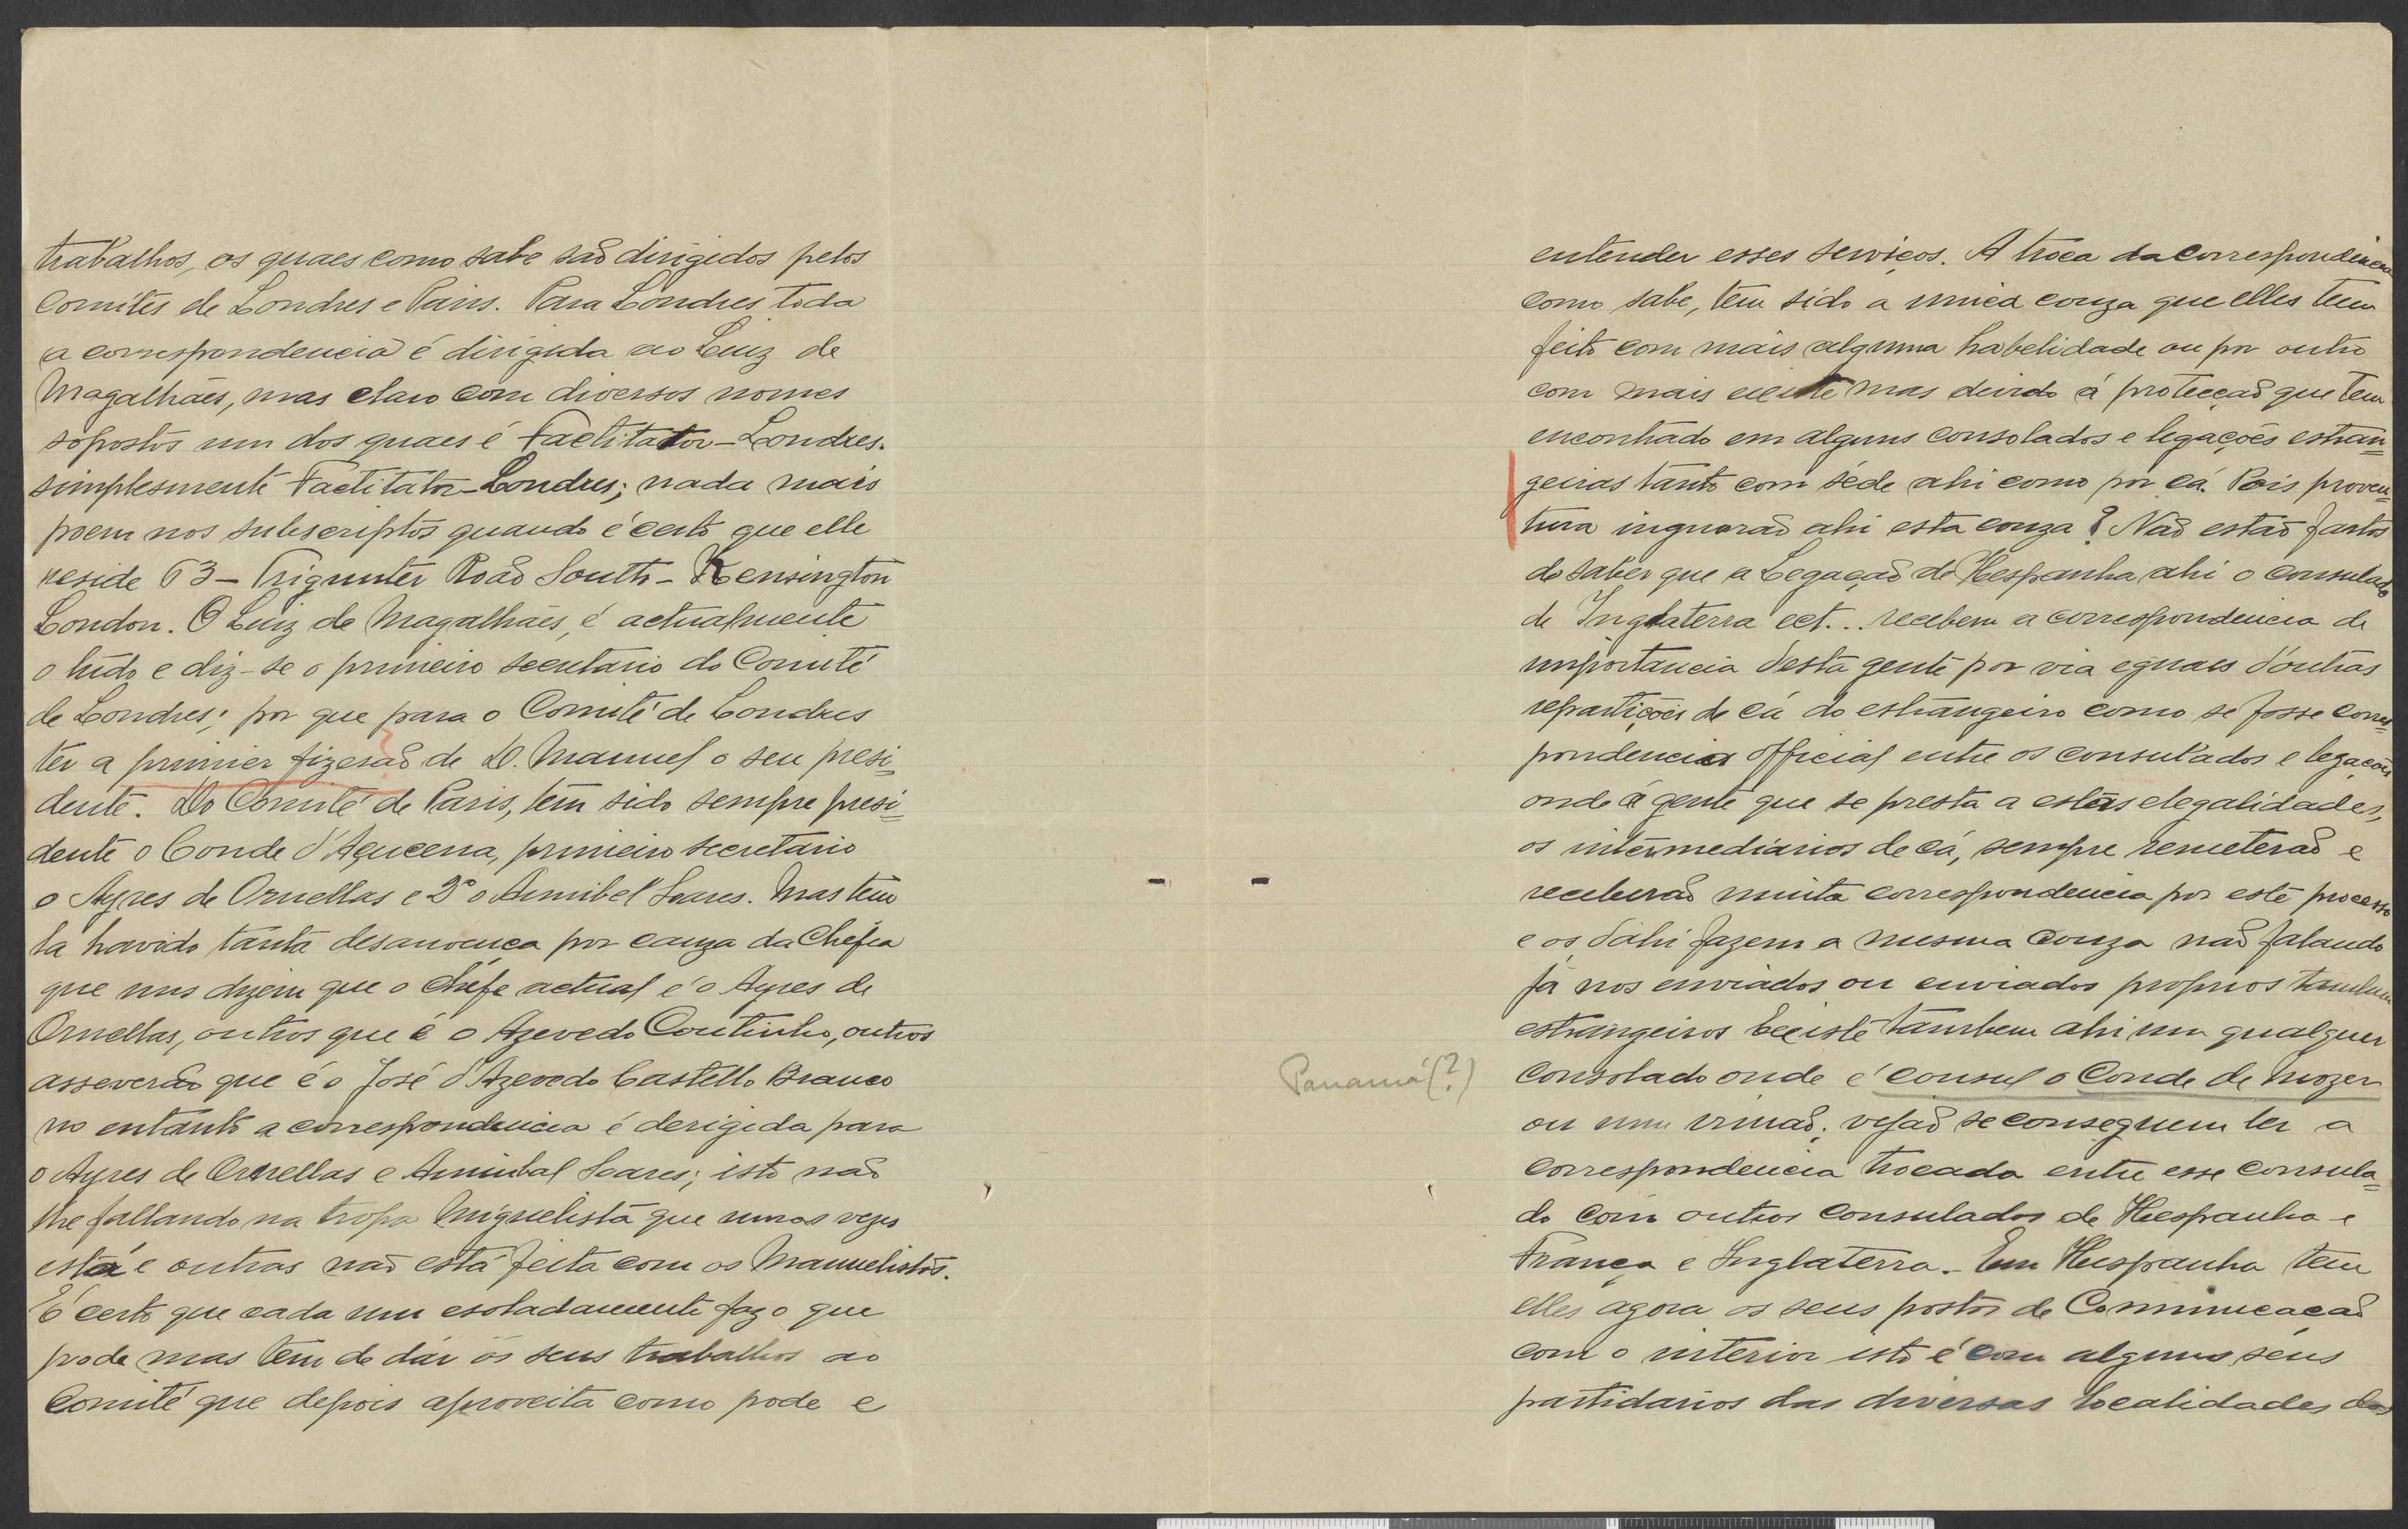 trabalhos, os quaes como sabe saõ dirigidos pelos
Comités de Londres e Paris. Para Londres toda
a correspondencia é dirigida ao Luiz de
Magalhães, mas claro com diversos nomes
sopostos um dos quaes é Factitator-Londres.
simplesmente Factitator-Londres; nada mais
poem nos subscriptos quando é certo que elle
reside 63- Trigunter Road South-Kensington
London. O Luiz de Magalhães, é actualmente
o tudo e diz-se o primeiro secretario do Comité
de Londres; por que para o Comité de Londres
ter a primier fizeraõ de D. Manuel o seu presi=
dente. Do Comité de Paris, tem sido sempre presi=
dente o Conde d'Açucena, primeiro secretario
o Ayres de Ornellas e 2º o Annibel Soares. Mas tem
la havido tanta desavença por cauza da Chefia
que uns dizem que o chefe actual é o Ayres de
Ornellas, outros que é o Azevedo Coutinho, outros
asseveraõ que é o José d'Azevedo Castello Branco
no entanto a correspondencia é derigida para
o Ayres de Ornellas e Annibal Soares; isto naõ
lhe fallando na tropa Miguelista que umas vezes
está e outras naõ está feita com os Manuelistas.
É certo que cada um esoladamente faz o que
pode mas tem de dár os seus trabalhos ao
Comité que depois aproveita como pode e
entender esses serviços. A troca da correspondencia
como sabe, tem sido a unica couza que elles tem
feito com mais alguma habelidade ou por outro
com mais mas devido á protecçaõ que tem
encontrado em alguns consolados e legações estran=
geiras tanto com séde ahi como por cá. Pois proven=
tura ingnoraõ ahi esta couza? Naõ estaõ fartos
de saber que a Legaçaõ de Hespanha ahi o consulado
de Inglaterra ect... recebem a correspondencia de
importancia desta gente por via eguaes d'outras
repartições de cá do estrangeiro como se fosse corres=
pondencia official entre os consulados e legações
onde á gente que se presta a estas elegalidades,
os intermediarios de cá, sempre remeteraõ e
receberaõ muita correspondencia por este processo
e os dahi fazem a mesma couza naõ falando
já nos enviados ou enviados proprios tambem
estrangeiros Existe tambem ahi um qualquer
Panamá(?)
Consolado onde é consul o Conde de Mozer
ou um irmaõ; vejaõ se conseguem ler a
correspondencia trocada entre esse consula=
do com outros consulados de Hespanha e
França e Inglaterra. Em Hespanha tem
elles agora os seus postos de Comunicaçaõ
com o interior isto é com alguns seus
partidarios das diversas localidades das